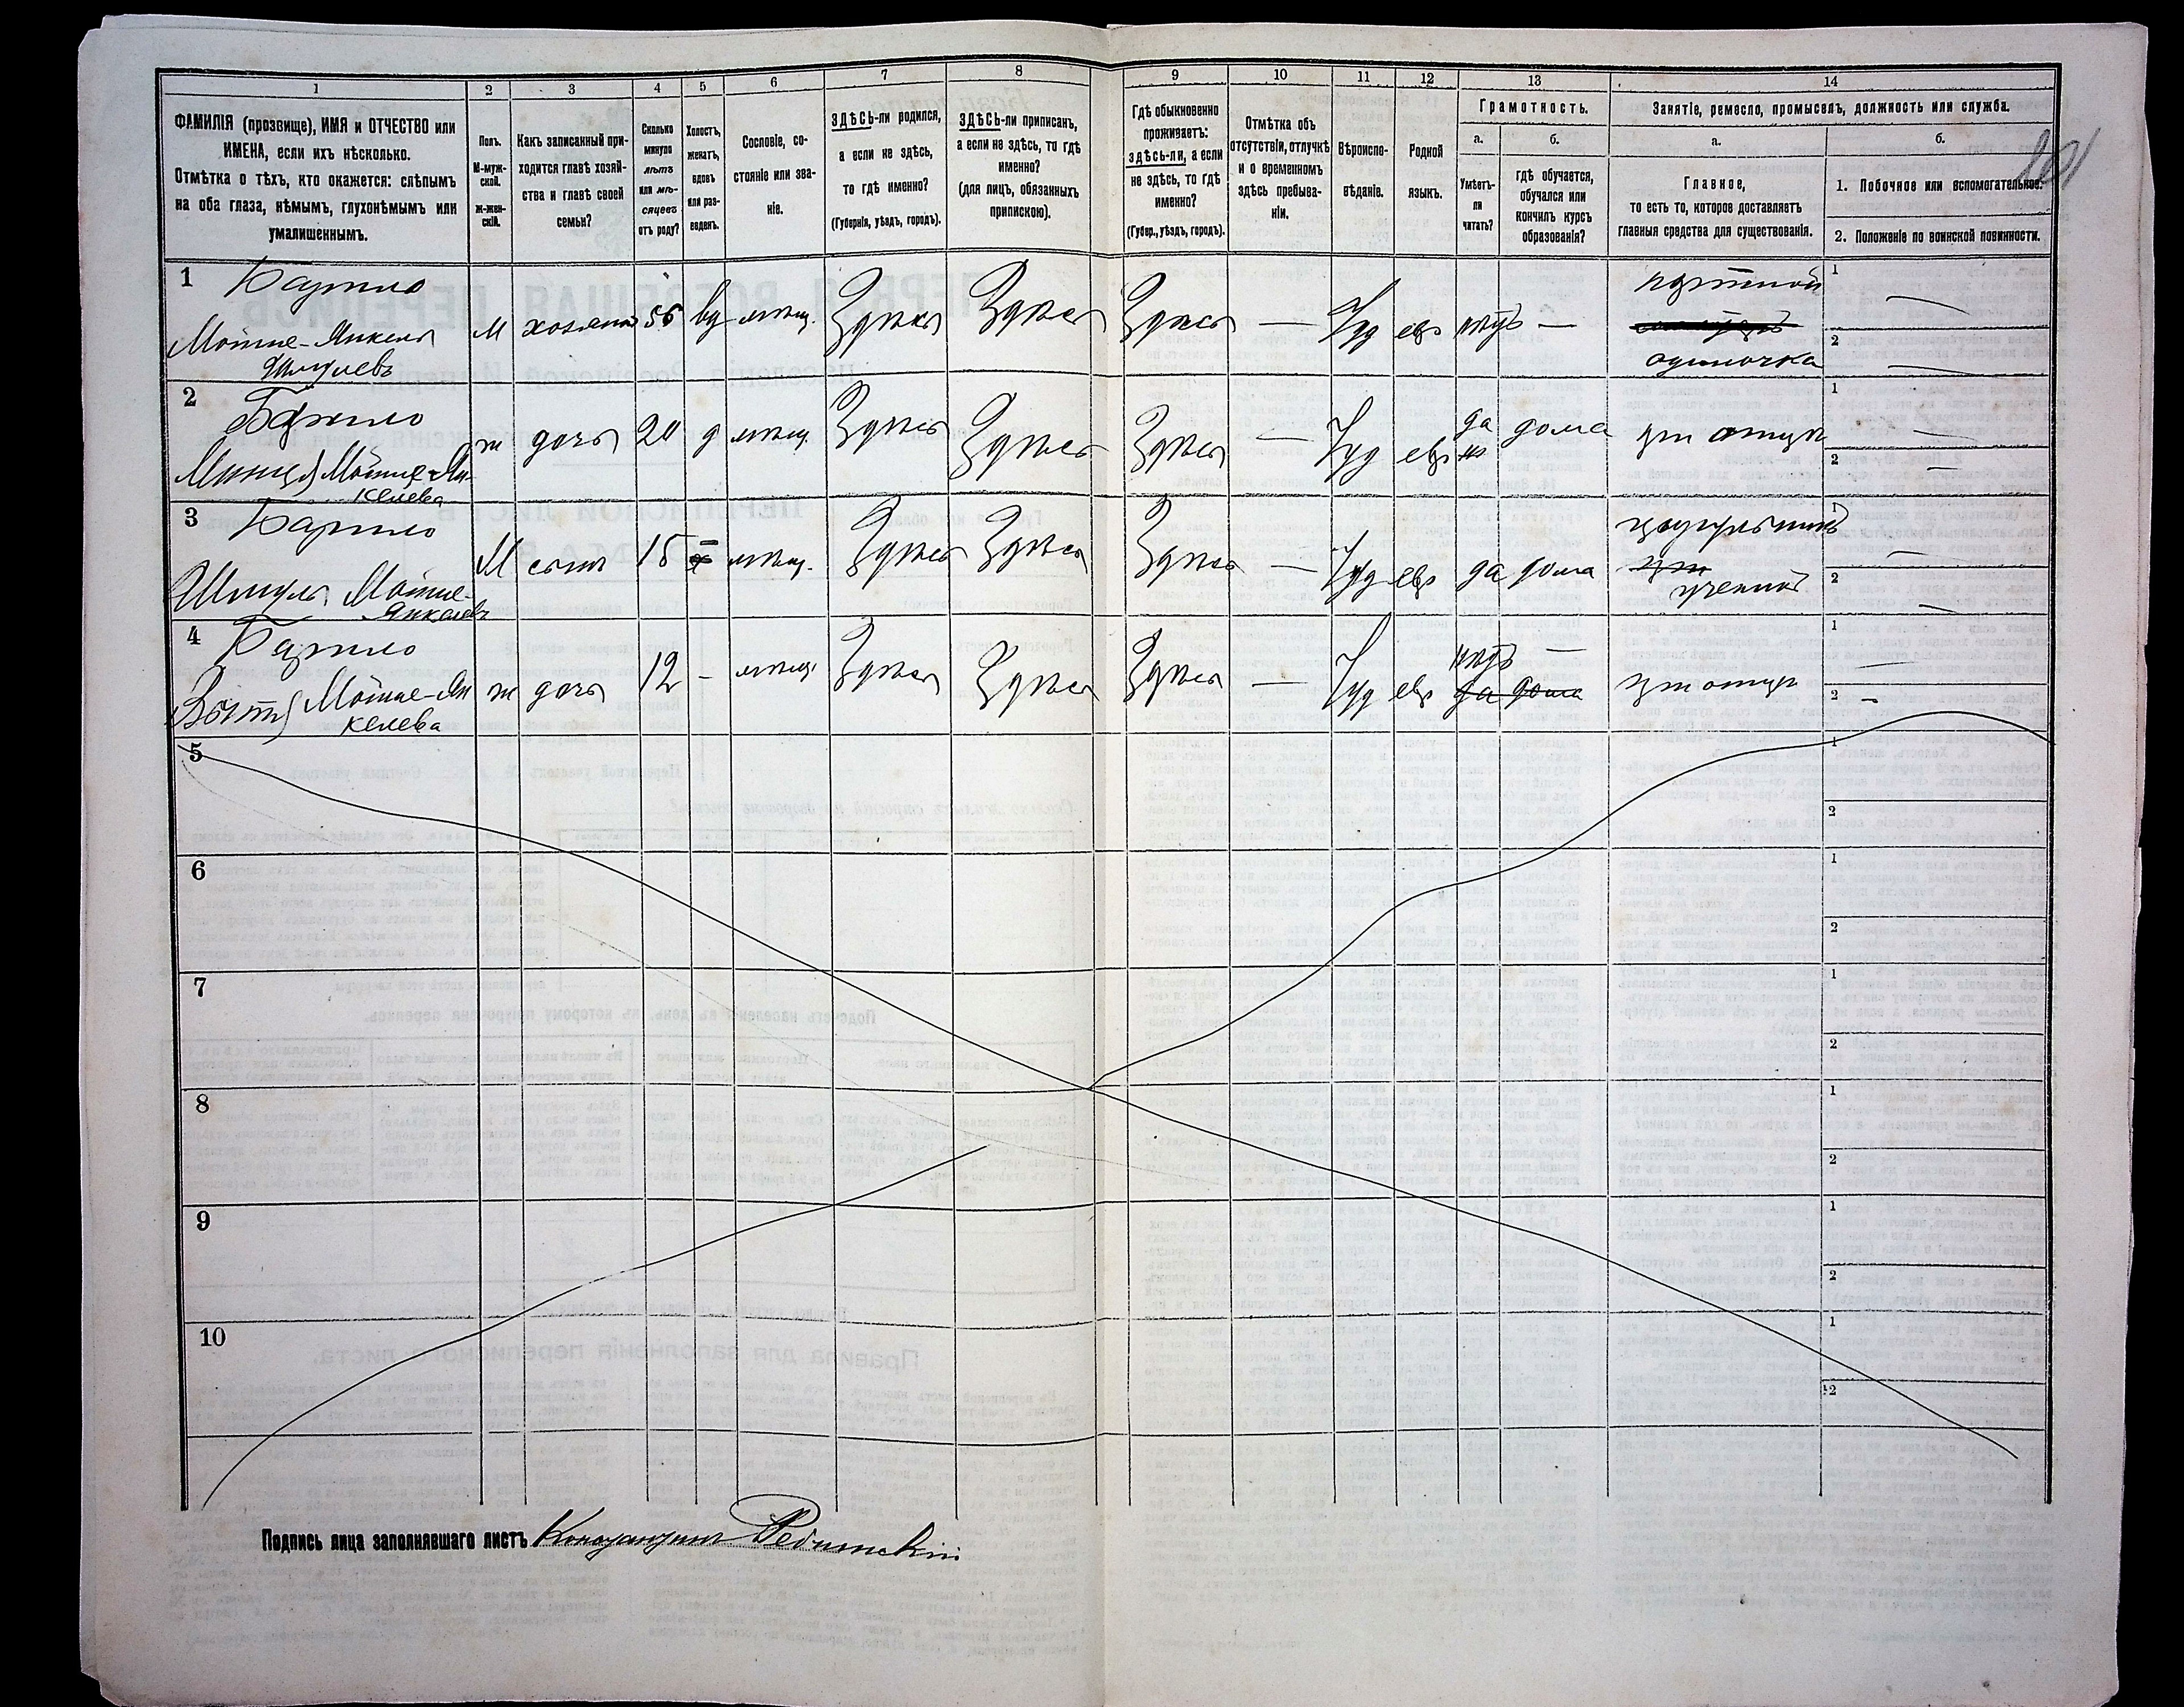 1 2 3 4 5 6 7 8 9 10 11 12 13 14
ФАМИЛІЯ (прозвище), ИМЯ и ОТЧЕСТВО или
ИМЕНА, если ихъ нѣсколько.
Отмѣтка о тѣхъ, кто окажется: слѣпымъ
на оба глаза, нѣмымъ, глухонѣмымъ или
умалишеннымъ.
Полъ.
М-муж-
ской.
ж-жен-
скій.
Какъ записанный при-
ходится главѣ хозяй-
ства и главѣ своей
семьи?
Сколько
минуло
лѣтъ
или мѣ-
сяцевъ
отъ роду?
Холостъ,
женатъ,
вдовъ
или раз-
веденъ.
Сословіе, со-
стояніе или зва-
ніе.
ЗДѢСЬ-ли родился,
а если не здѣсь,
то гдѣ именно?
(Губернія, уѣздъ, городъ).
ЗДѢСЬ-ли приписанъ,
а если не здѣсь, то гдѣ
именно?
(для лицъ, обязанныхъ
припискою).
Гдѣ обыкновенно
проживаетъ:
здѣсь-ли, а если
не здѣсь, то гдѣ
именно?
(Губер., уѣздъ, городъ).
Отмѣтка объ
отсутствіи, отлучкѣ
и о временномъ
здѣсь пребыва-
ніи.
Вѣроиспо-
вѣданіе.
Родной
языкъ.
Грамотность.
а.
Умѣетъ-
ли
читать?
б.
гдѣ обучается,
обучался или
кончилъ курсъ
образованія?
Занятіе, ремесло, промыселъ, должность или служба.
а.
Главное,
то есть то, которое доставляетъ
главныя средства для существованія.
б.
1. Побочное или вспомогательное.
2. Положеніе по воинской повинности.
1
Мотше-Янкель
Шмулевъ
М хозяинъ 56 вд мѣщ. Здѣсь Здѣсь Здѣсь — Іуд евр нѣтъ —
портной
одиночка
1 —
2 —
2
Мотше-Ян-
келева
ж дочь 20 д мѣщ. Здѣсь Здѣсь Здѣсь — Іуд евр да дома при отцѣ
1 —
2 —
3
Шмуль Мотше-
Янкелевъ
М сынъ 15 мѣщ. Здѣсь Здѣсь Здѣсь — Іуд евр да дома
ученикъ
1 —
2 —
4
Мотше-Ян
келева
ж дочь 12 – мѣщ Здѣсь Здѣсь Здѣсь — Іуд евр нѣтъ —
да дома
при отцѣ
1 —
2 –
5
1
2
6
1
2
7
1
2
8
1
2
9
1
2
10
1
2
Подпись лица заполнявшаго листъ